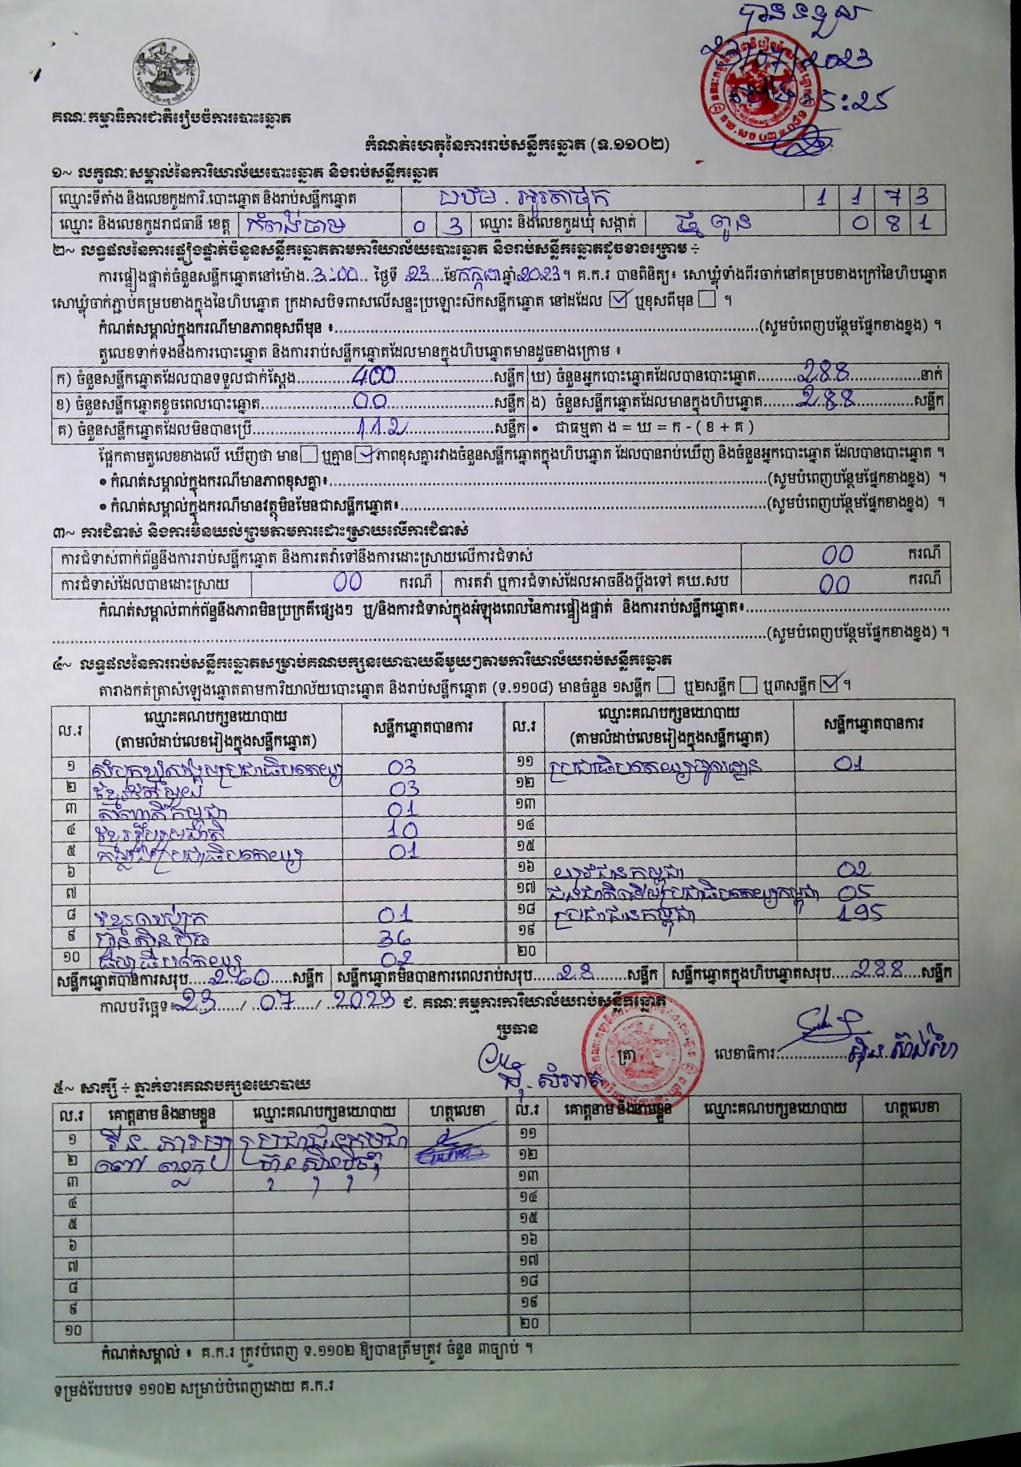 បានទទួល
23/07/2023
គណៈកម្មាធិការជាតិរៀបចំការបោះឆ្នោត
កំណត់ហេតុនៃការរាប់សន្លឹកឆ្នោត (ទ.១១០២)
១~ លក្ខណៈសម្គាល់នៃការិយាល័យបោះឆ្នោត និងរាប់សន្លឹកឆ្នោត
ឈ្មោះទីតាំង និងលេខកូដការិ.បោះឆ្នោត និងរាប់សន្លឹកឆ្នោត 1 1 7 3
ឈ្មោះ និងលេខកូដរាជធានី ខេត្ត កំពង់ចាម 0 3 ឈ្មោះ និងលេខកូដឃុំ សង្កាត់ 0 8 1
២~ លទ្ធផលនៃការផ្ទៀងផ្ទាត់ចំនួនសន្លឹកឆ្នោតតាមការិយាល័យបោះឆ្នោត និងរាប់សន្លឹកឆ្នោតដូចខាងក្រោម ÷
ការផ្ទៀងផ្ទាត់ចំនួនសន្លឹកឆ្នោតនៅម៉ោង..3:00.. ថ្ងៃទី 23 ខែកក្កដាឆ្នាំ2023។ គ.ក.រ បានពិនិត្យ៖ សោឃ្លុំទាំងពីរចាក់នៅគម្របខាងក្រៅនៃហិបឆ្នោត
សោឃ្លុំចាក់ភ្ជាប់គម្របខាងក្នុងនៃហិបឆ្នោត ក្រដាសបិទពាសលើសន្ទះប្រឡោះស៊កសន្លឹកឆ្នោត នៅដដែល ☑ ឬខុសពីមុន ☐ ។
កំណត់សម្គាល់ក្នុងករណីមានភាពខុសពីមុន ៖........(សូមបំពេញបន្ថែមផ្នែកខាងខ្នង) ។
តួលេខទាក់ទងនឹងការបោះឆ្នោត និងការរាប់សន្លឹកឆ្នោតដែលមានក្នុងហិបឆ្នោតមានដូចខាងក្រោម ៖
ក) ចំនួនសន្លឹកឆ្នោតដែលបានទទួលជាក់ស្តែង....400....សន្លឹក ឃ) ចំនួនអ្នកបោះឆ្នោតដែលបានបោះឆ្នោត....288....នាក់
ខ) ចំនួនសន្លឹកឆ្នោតខូចពេលបោះឆ្នោត....00....សន្លឹក ង) ចំនួនសន្លឹកឆ្នោតដែលមានក្នុងហិបឆ្នោត....288....សន្លឹក
គ) ចំនួនសន្លឹកឆ្នោតដែលមិនបានប្រើ....112....សន្លឹក • ជាធម្មតា ង = ឃ = ក - ( ខ + គ )
ផ្អែកតាមតួលេខខាងលើ ឃើញថា មាន ☐ ឬគ្មាន ☑ ភាពខុសគ្នារវាងចំនួនសន្លឹកឆ្នោតក្នុងហិបឆ្នោត ដែលបានរាប់ឃើញ និងចំនួនអ្នកបោះឆ្នោត ដែលបានបោះឆ្នោត ។
• កំណត់សម្គាល់ក្នុងករណីមានភាពខុសគ្នា៖........(សូមបំពេញបន្ថែមផ្នែកខាងខ្នង) ។
• កំណត់សម្គាល់ក្នុងករណីមានវត្ថុមិនមែនជាសន្លឹកឆ្នោត៖........(សូមបំពេញបន្ថែមផ្នែកខាងខ្នង) ។
៣~ ការជំទាស់ និងការមិនយល់ព្រមតាមការដោះស្រាយលើការជំទាស់
ការជំទាស់ពាក់ព័ន្ធនឹងការរាប់សន្លឹកឆ្នោត និងការតវ៉ាទៅនឹងការដោះស្រាយលើការជំទាស់ 00 ករណី
ការជំទាស់ដែលបានដោះស្រាយ 00 ករណី ការតវ៉ា ឬការជំទាស់ដែលអាចនឹងប្តឹងទៅ គឃ.សប 00 ករណី
កំណត់សម្គាល់ពាក់ព័ន្ធនឹងភាពមិនប្រក្រតីផ្សេងៗ ឬ/និងការជំទាស់ក្នុងអំឡុងពេលនៃការផ្ទៀងផ្ទាត់ និងការរាប់សន្លឹកឆ្នោត៖........
........(សូមបំពេញបន្ថែមផ្នែកខាងខ្នង) ។
៤~ លទ្ធផលនៃការរាប់សន្លឹកឆ្នោតសម្រាប់គណបក្សនយោបាយនីមួយៗតាមការិយាល័យរាប់សន្លឹកឆ្នោត
តារាងកត់ត្រាសំឡេងឆ្នោតតាមការិយាល័យបោះឆ្នោត និងរាប់សន្លឹកឆ្នោត (ទ.១១០៨) មានចំនួន ១សន្លឹក ☐ ឬ២សន្លឹក ☐ ឬ៣សន្លឹក ☑ ។
ល.រ ឈ្មោះគណបក្សនយោបាយ (តាមលំដាប់លេខរៀងក្នុងសន្លឹកឆ្នោត) សន្លឹកឆ្នោតបានការ ល.រ ឈ្មោះគណបក្សនយោបាយ (តាមលំដាប់លេខរៀងក្នុងសន្លឹកឆ្នោត) សន្លឹកឆ្នោតបានការ
១ សំបុកឃ្មុំសង្គមប្រជាធិបតេយ្យ 03 ១១ ប្រជាធិបតេយ្យមូលដ្ឋាន 01
២ ខ្មែរតែមួយ 03 ១២
៣ កម្ពុជា 01 ១៣
៤ ខ្មែររួបរួមជាតិ 10 ១៤
៥ ប្រជាធិបតេយ្យ 01 ១៥
៦ ១៦ យុវជនកម្ពុជា 02
៧ ១៧ ជនជាតិដើមប្រជាធិបតេយ្យកម្ពុជា 05
៨ 01 ១៨ ប្រជាជនកម្ពុជា 195
៩ ហ្វ៊ុនស៊ិនប៉ិច 36 ១៩
១០ ធម្មាធិបតេយ្យ 02 ២០
សន្លឹកឆ្នោតបានការសរុប....260....សន្លឹក សន្លឹកឆ្នោតមិនបានការពេលរាប់សរុប....28....សន្លឹក សន្លឹកឆ្នោតក្នុងហិបឆ្នោតសរុប....288....សន្លឹក
កាលបរិច្ឆេទ 23 / 07 / 2023 ជ. គណៈកម្មការការិយាល័យរាប់សន្លឹកឆ្នោត
ប្រធាន
ត្រា លេខាធិការ
៥~ សាក្សី ÷ ភ្នាក់ងារគណបក្សនយោបាយ
ល.រ គោត្តនាម និងនាមខ្លួន ឈ្មោះគណបក្សនយោបាយ ហត្ថលេខា ល.រ គោត្តនាម និងនាមខ្លួន ឈ្មោះគណបក្សនយោបាយ ហត្ថលេខា
១ ប្រជាជនកម្ពុជា ១១
២ ហ្វ៊ុនស៊ិនប៉ិច ១២
៣ ១៣
៤ ១៤
៥ ១៥
៦ ១៦
៧ ១៧
៨ ១៨
៩ ១៩
១០ ២០
កំណត់សម្គាល់ ៖ គ.ក.រ ត្រូវបំពេញ ទ.១១០២ ឱ្យបានត្រឹមត្រូវ ចំនួន ៣ច្បាប់ ។
ទម្រង់បែបបទ ១១០២ សម្រាប់បំពេញដោយ គ.ក.រ